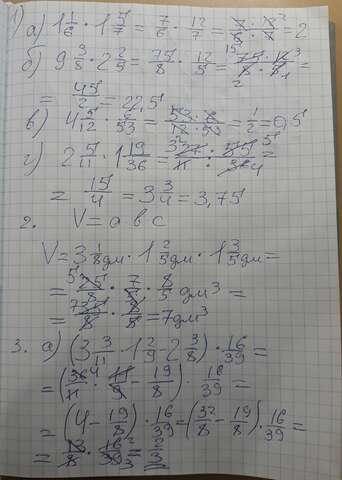 1) а) 1 1/6 · 1 5/7 = 7/6 · 12/7 = 7 · 12 / 6 · 7 = 2
б) 9 3/8 · 2 2/5 = 75/8 · 12/5 = 75 · 12 / 8 · 5 =
= 45/2 = 22,5
в) 4 5/12 · 6/53 = 53 · 6 / 12 · 53 = 1/2 = 0,5
г) 2 5/11 · 1 19/36 = 27 · 55 / 11 · 36
= 15/4 = 3 3/4 = 3,75
2. V = a b c
V = 3 1/8 дм · 1 2/5 дм · 1 3/5 дм =
= 25/8 · 7/5 · 8/5 дм³ =
= 7дм³
3. а) (3 3/11 · 1 2/9 - 2 3/8) · 16/39 =
= (36/11 · 11/9 - 19/8) · 16/39 =
= (4 - 19/8) · 16/39 = (32/8 - 19/8) · 16/39 =
= 13/8 · 16/39 = 2/3